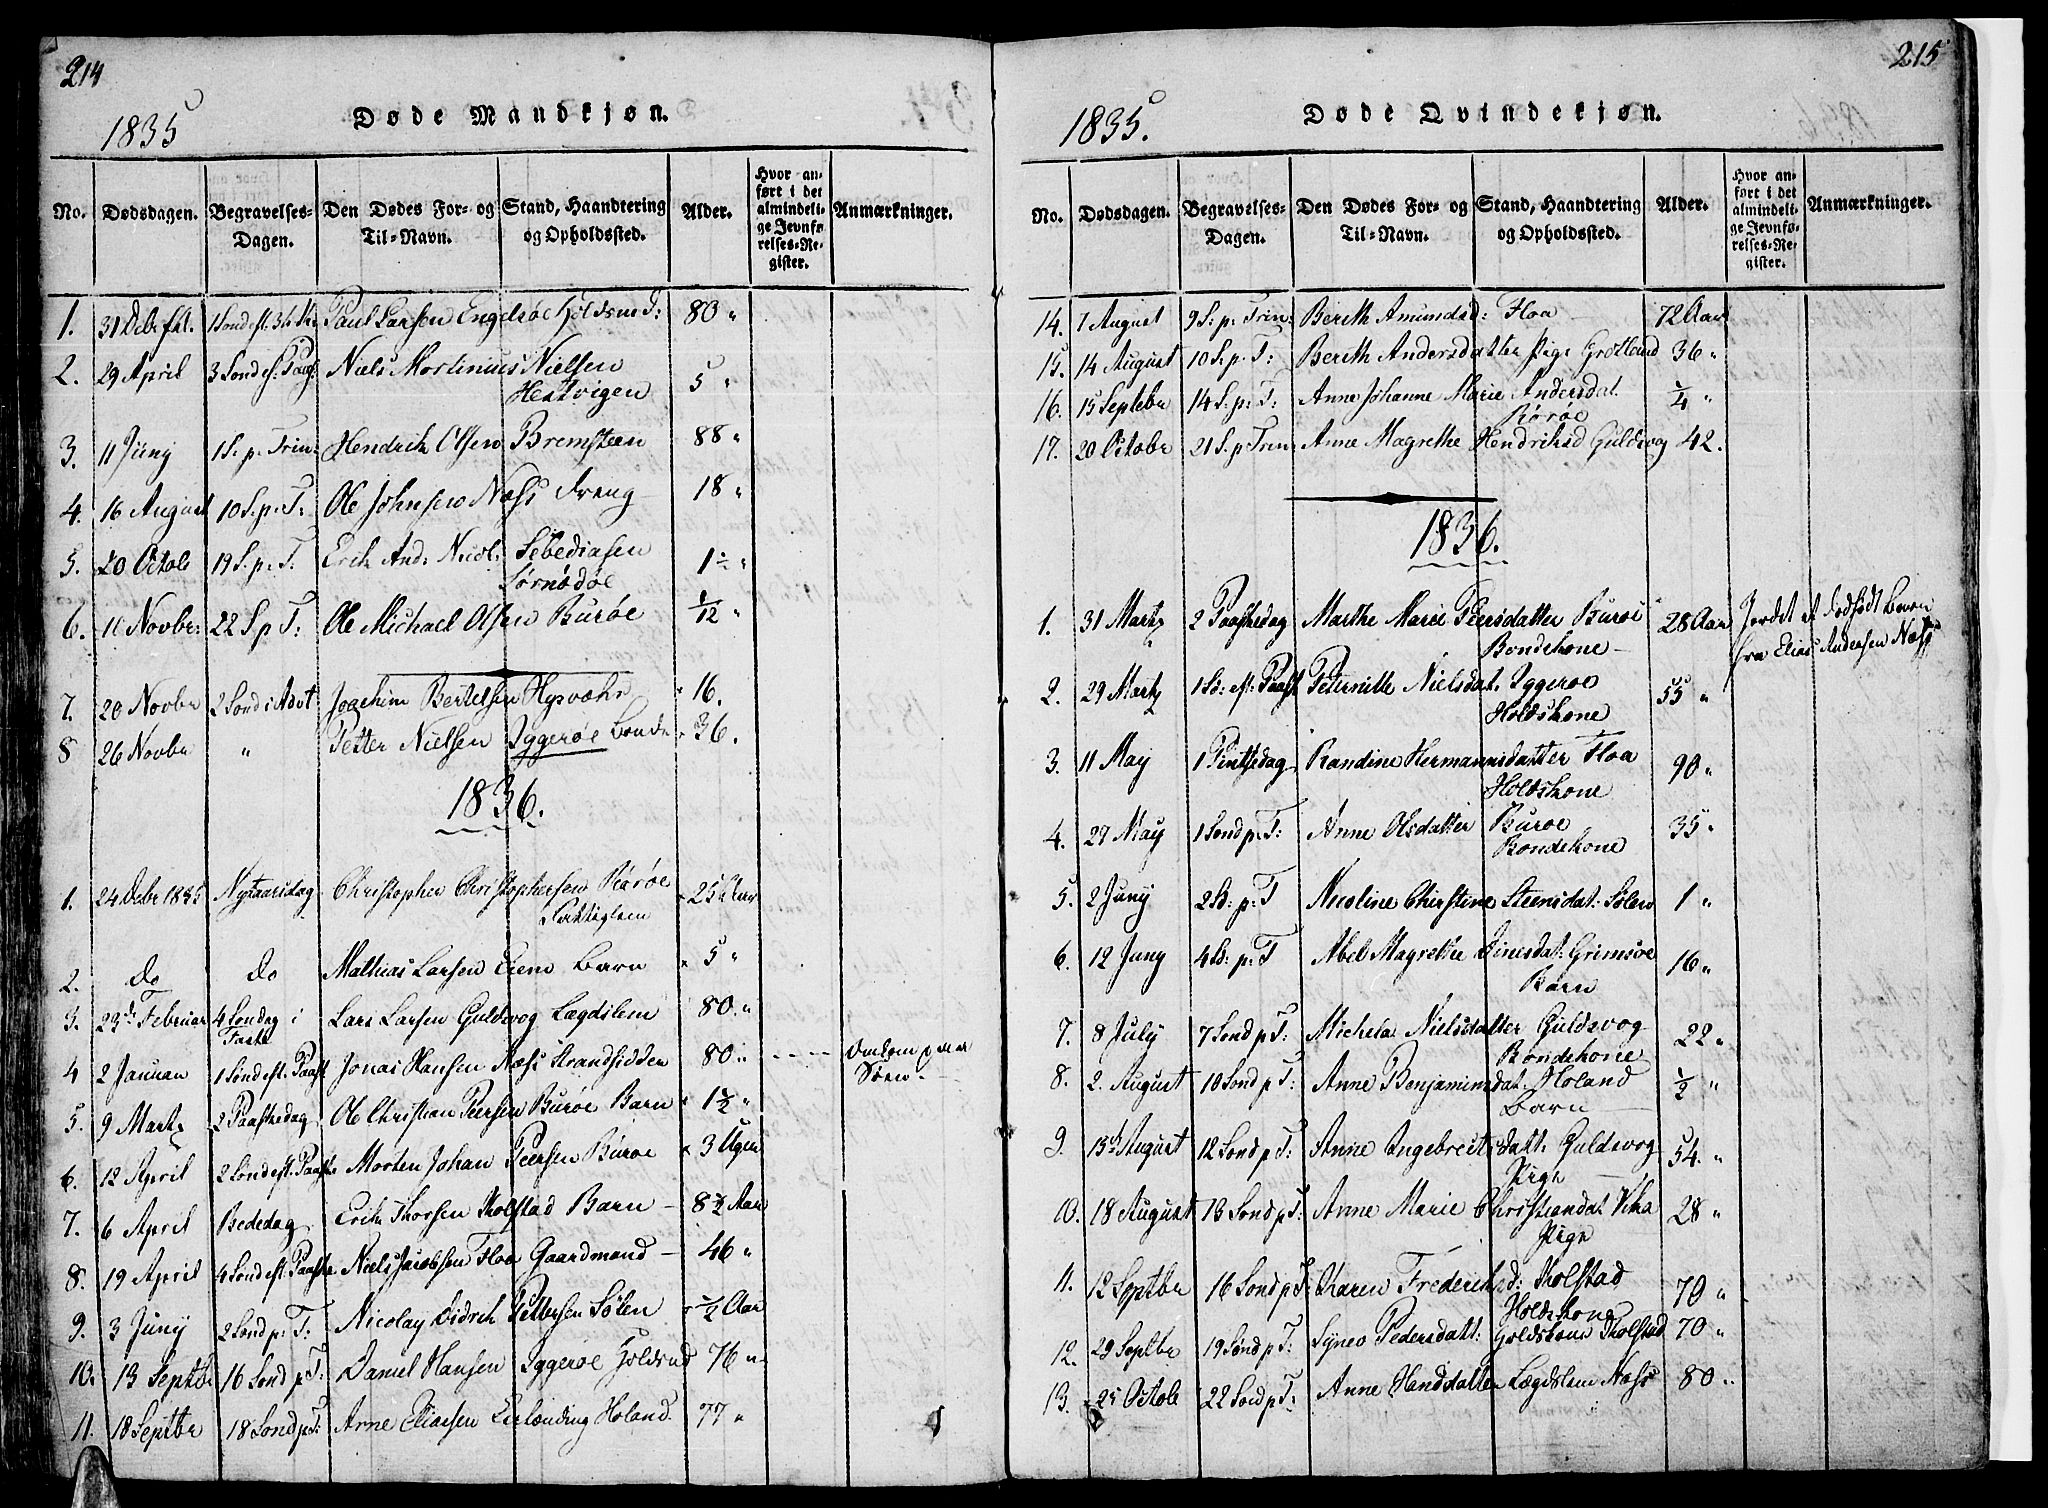 214
1835
Døde Mandkjøn.
No. Dødsdagen. Begravelses-Dagen. Den Dødes For- og Til-Navn. Stand, Haandtering og Opholdssted. Alder. Hvor anført i det almindelige Jevnførelses-Register. Anmærkninger.
1. 31 Debr 1 Sond eft. Paul Larsen Engelsøe Holdsmd: 80 "
2. 29 April 3 Sond ef. Paas. Niels Mortinius Nielsen
Hestvigen 5 "
3. 11 Juny 1 S. p. Trin: Hendrik Olsen Bremsteen 88 "
4. 16 August 10 S. p. T: Ole Johnsen Næss Dreng 18 "
5. 20 Octob 19 S. p. T. Erik And: Nicol: Sebediasen
Sørnødøe 1 "
6. Novbr: 22 S p T: Ole Michael Olsen Burøe 1/12 "
7. 20 Novbr 2 Sond i Advt Joachim Bertelsen Hysvær 16.
8 26 Novbr " Petter Nielsen Iggerøe Bonde 36.
1836.
1. 24 Debr 1835 Nytaarsdag Christopher Christophersen Rørøe
25 Aar
2. do do Mathias Larsen Barn 5 "
3. 23de Februar 4 Søndag i
Faste Lars Larsen Guldvog Lægdslem 80. "
4 2 Januari 1 Sønd eft. Paask Jonas Hansen Næss Strandsidder 80 " Omkom paa
Søen
5. 9 Martz 2 Paaskedag Ole Christian Peersen Burøe Barn 1 1/2 "
6. 12 April 2 Sønd eft. Paaske Morten Johan Peersen Burøe 3 Uger
7. 6 April Bededag Erik Thorsen Tholstad Barn 8 1/2 Aar
8. 19 April 4 Sond eft. Paaske Niels Jacobsen Floa Gaardmand 46 "
9. 3 Juny 2 Sond p. T: Nicolay Didrik Pettersen Sølen 1/2 Aar
10. 13 Septbr 16 Sond p T: Daniel Hansen Iggerøe Holdsmd 76 "
11. 18 Septbr 18 Sond p T: Arne Eliassen Enlænding Holand. 77 "
215
1835.
Døde Qvindekjøn.
No. Dødsdagen. Begravelses-Dagen. Den Dødes For- og Til-Navn. Stand, Haandtering og Opholdssted. Alder. Hvor anført i det almindelige Jevnførelses-Register. Anmærkninger.
14. 7 August 9 S. p. Trin: Berith Amundsd: Floa 72 Aar
15. 14 August 10 S. p. T: Berith Andersdatter Pige Grøtland 36 "
16. 15 Septebr 14 S. p. T: Anne Johanne Marie Andersdat.
Rørøe 1/4 "
17. 20 Octobr 21 S. p Trin: Anne Magrethe Hendriksd Guldvog 42.
1836.
1. 31 Martz 2 Paaskedag Marthe Marie Peersdatter Burøe
Bondekone 28 Aar Jordet et dødfødt Barn
fra Elias Andersen Næss
2. 29 Martz 1 Sd: ef. Paask Peternille Nielsdat. Iggerøe
Holdskone 55 "
3. 11 May 1 Pintsedag Randine Hermannsdatter Floa
Holdskone 90 "
4. 27 May 1 Sond p. T: Anne Olsdatter Burøe
Bondekone 35 "
5. 2 Juny 2 Sd: p: T Nicoline Christine Steensdat: Sølen 1 "
6. 12 Juny 4 Sd: p: T Abel Magrethe Dinesdat: Grimsøe
Barn 16 "
7. 8 July 7 Sond p T: Michela Nielsdatter Guldsvog
Bondekone 22 "
8. 2. August 10 Sond p T: Anne Benjaminsdat. Holand
Barn 1/2 "
9. 15de August 12 Sond p T: Anne Ingebreitsdatt: Guldsvog
Pige 54. "
10. 18 August 13 Sond p T: Anne Marie Christiandat Vika
Pige 28 "
11. 12 Septbr 16 Sond p T: Karen Frederiksd: Tholstad
Holdskone 70 "
12. 29 Septbr 19 Sønd p T: Synev Pedersdatt: Holdskone Tholstad 70 "
13. 25 Octob 22 Sond p T: Anne Handsdatter Lægdslem Næss 80 "